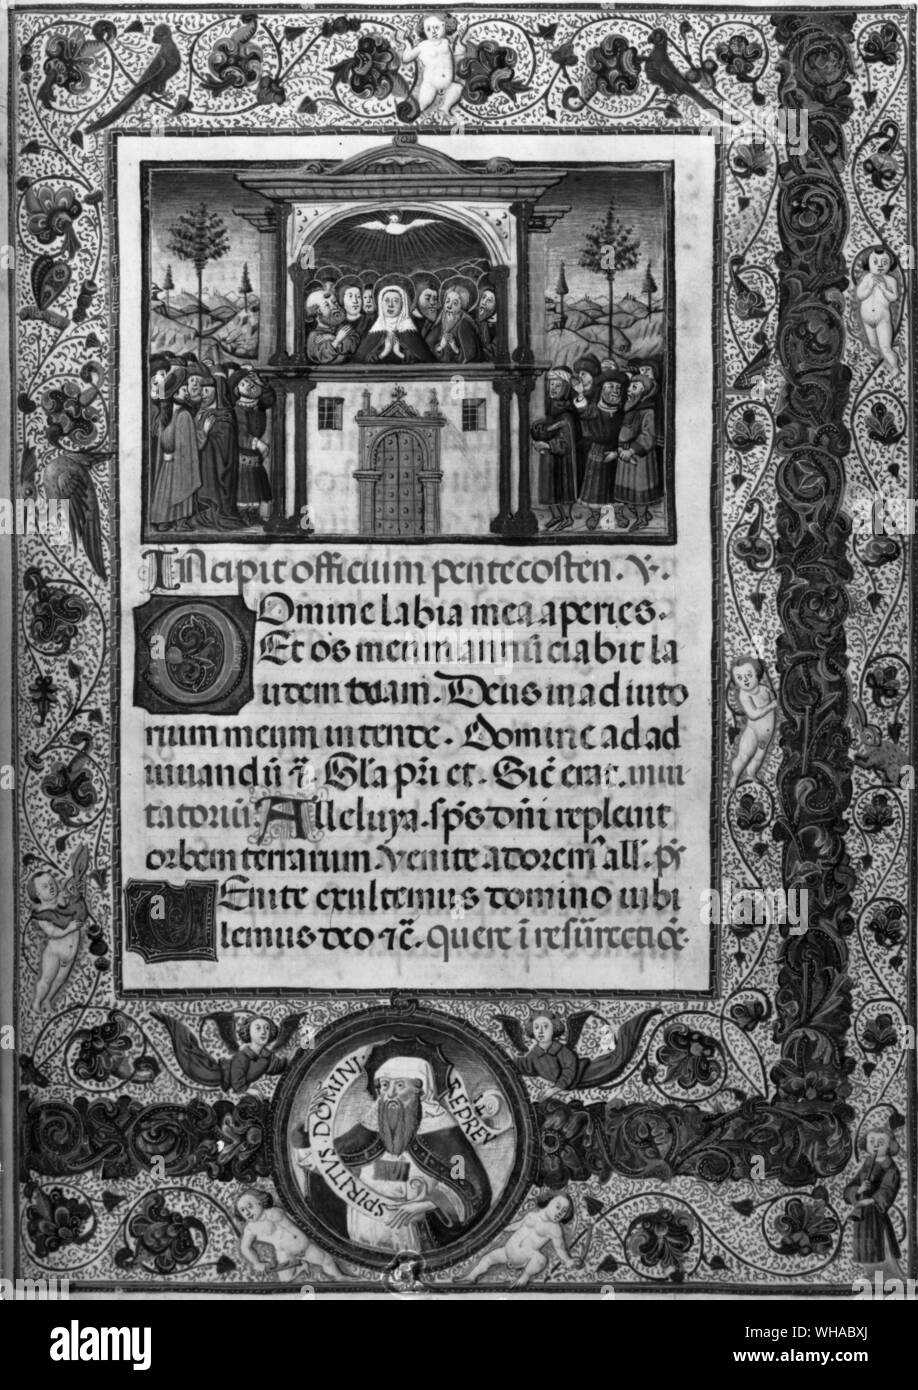 Incipit officium pentecosten. V.
Domine labia mea aperies.
Et os meum annūciabit la
udem tuam. Deus in adiuto
rium meum intende. Domine ad ad
iuuandū ⁊c̄. Gl̄a pr̄i et. Sic̄ erat. inui
tatoriū. Alleluya. sp̄s dn̄i repleuit
orbem terrarum. venite adorem⁹ all'. p̄s
Venite exultemus domino iubi
lemus deo ⁊c̄. quere ī resurrectiōe.
SPIRITVS · DOMINI
REPREVIT
alamy
Image ID: WHABXJ
www.alamy.com